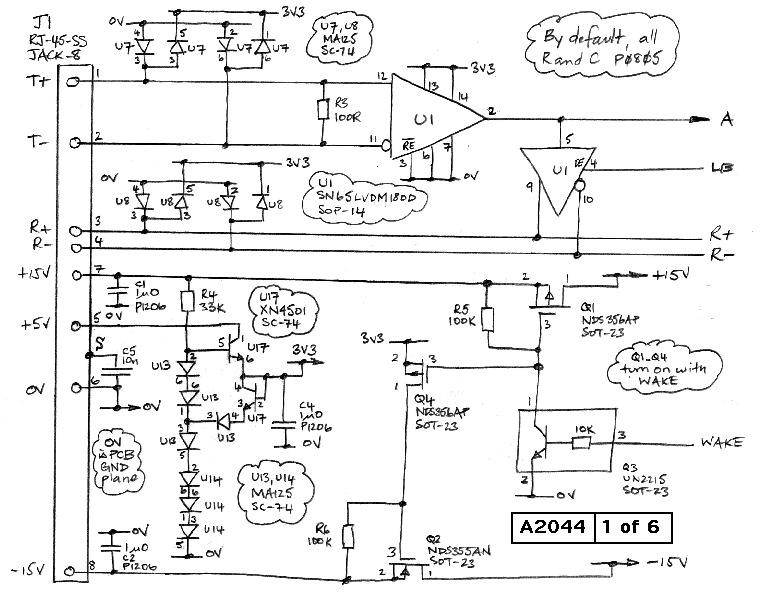 J1
RJ-45-SS
JACK-8
0V
3V3
4 5 2 1
U7 U7 U7 U7
3 3 6 6
U7, U8
MA125
SC-74
By default, all
R and C P0805
T+ 1
R3
100R
12
3V3
13
14
U1
2
A
T- 2
11
RE
3 6 7
0V
5
U1
RE 4
LB
9
10
3V3
0V
4 5 2 1
U8 U8 U8 U8
3 3
U1
SN65LVDM180D
SOP-14
R+ 3
R+
R- 4
R-
+15V 7
C1
1u0
P1206
0V
R4
33K
U17
XN4501
SC-74
R5
100K
2 1
+15V
3
Q1
NDS356AP
SOT-23
+5V 5
5
U17
6
3V3
3V3
2 3
1
Q4
NDS356AP
SOT-23
Q1-Q4
turn on with
WAKE
S
C5
10n
U13
2
6
U13
1
4
3 2
U17
3 4
U13
C4
1u0
P1206
0V
0V 6
0V
U13
3
5
0V
is PCB
GND
plane
1
10K
3
WAKE
2
Q3
UN2215
SOT-23
0V
2
U14
6 6
U14
1 3
U14
5
0V
U13, U14
MA125
SC-74
A2044 1 of 6
R6
100K
0V
1u0
C2
P1206
3
2 1
Q2
NDS355AN
SOT-23
-15V 8
-15V